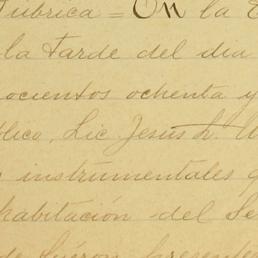 Rubrica = En la
la tarde del dia
ocientos ochenta y
blico, Lic Jesús L.
instrumentales
habitación del Se
presente